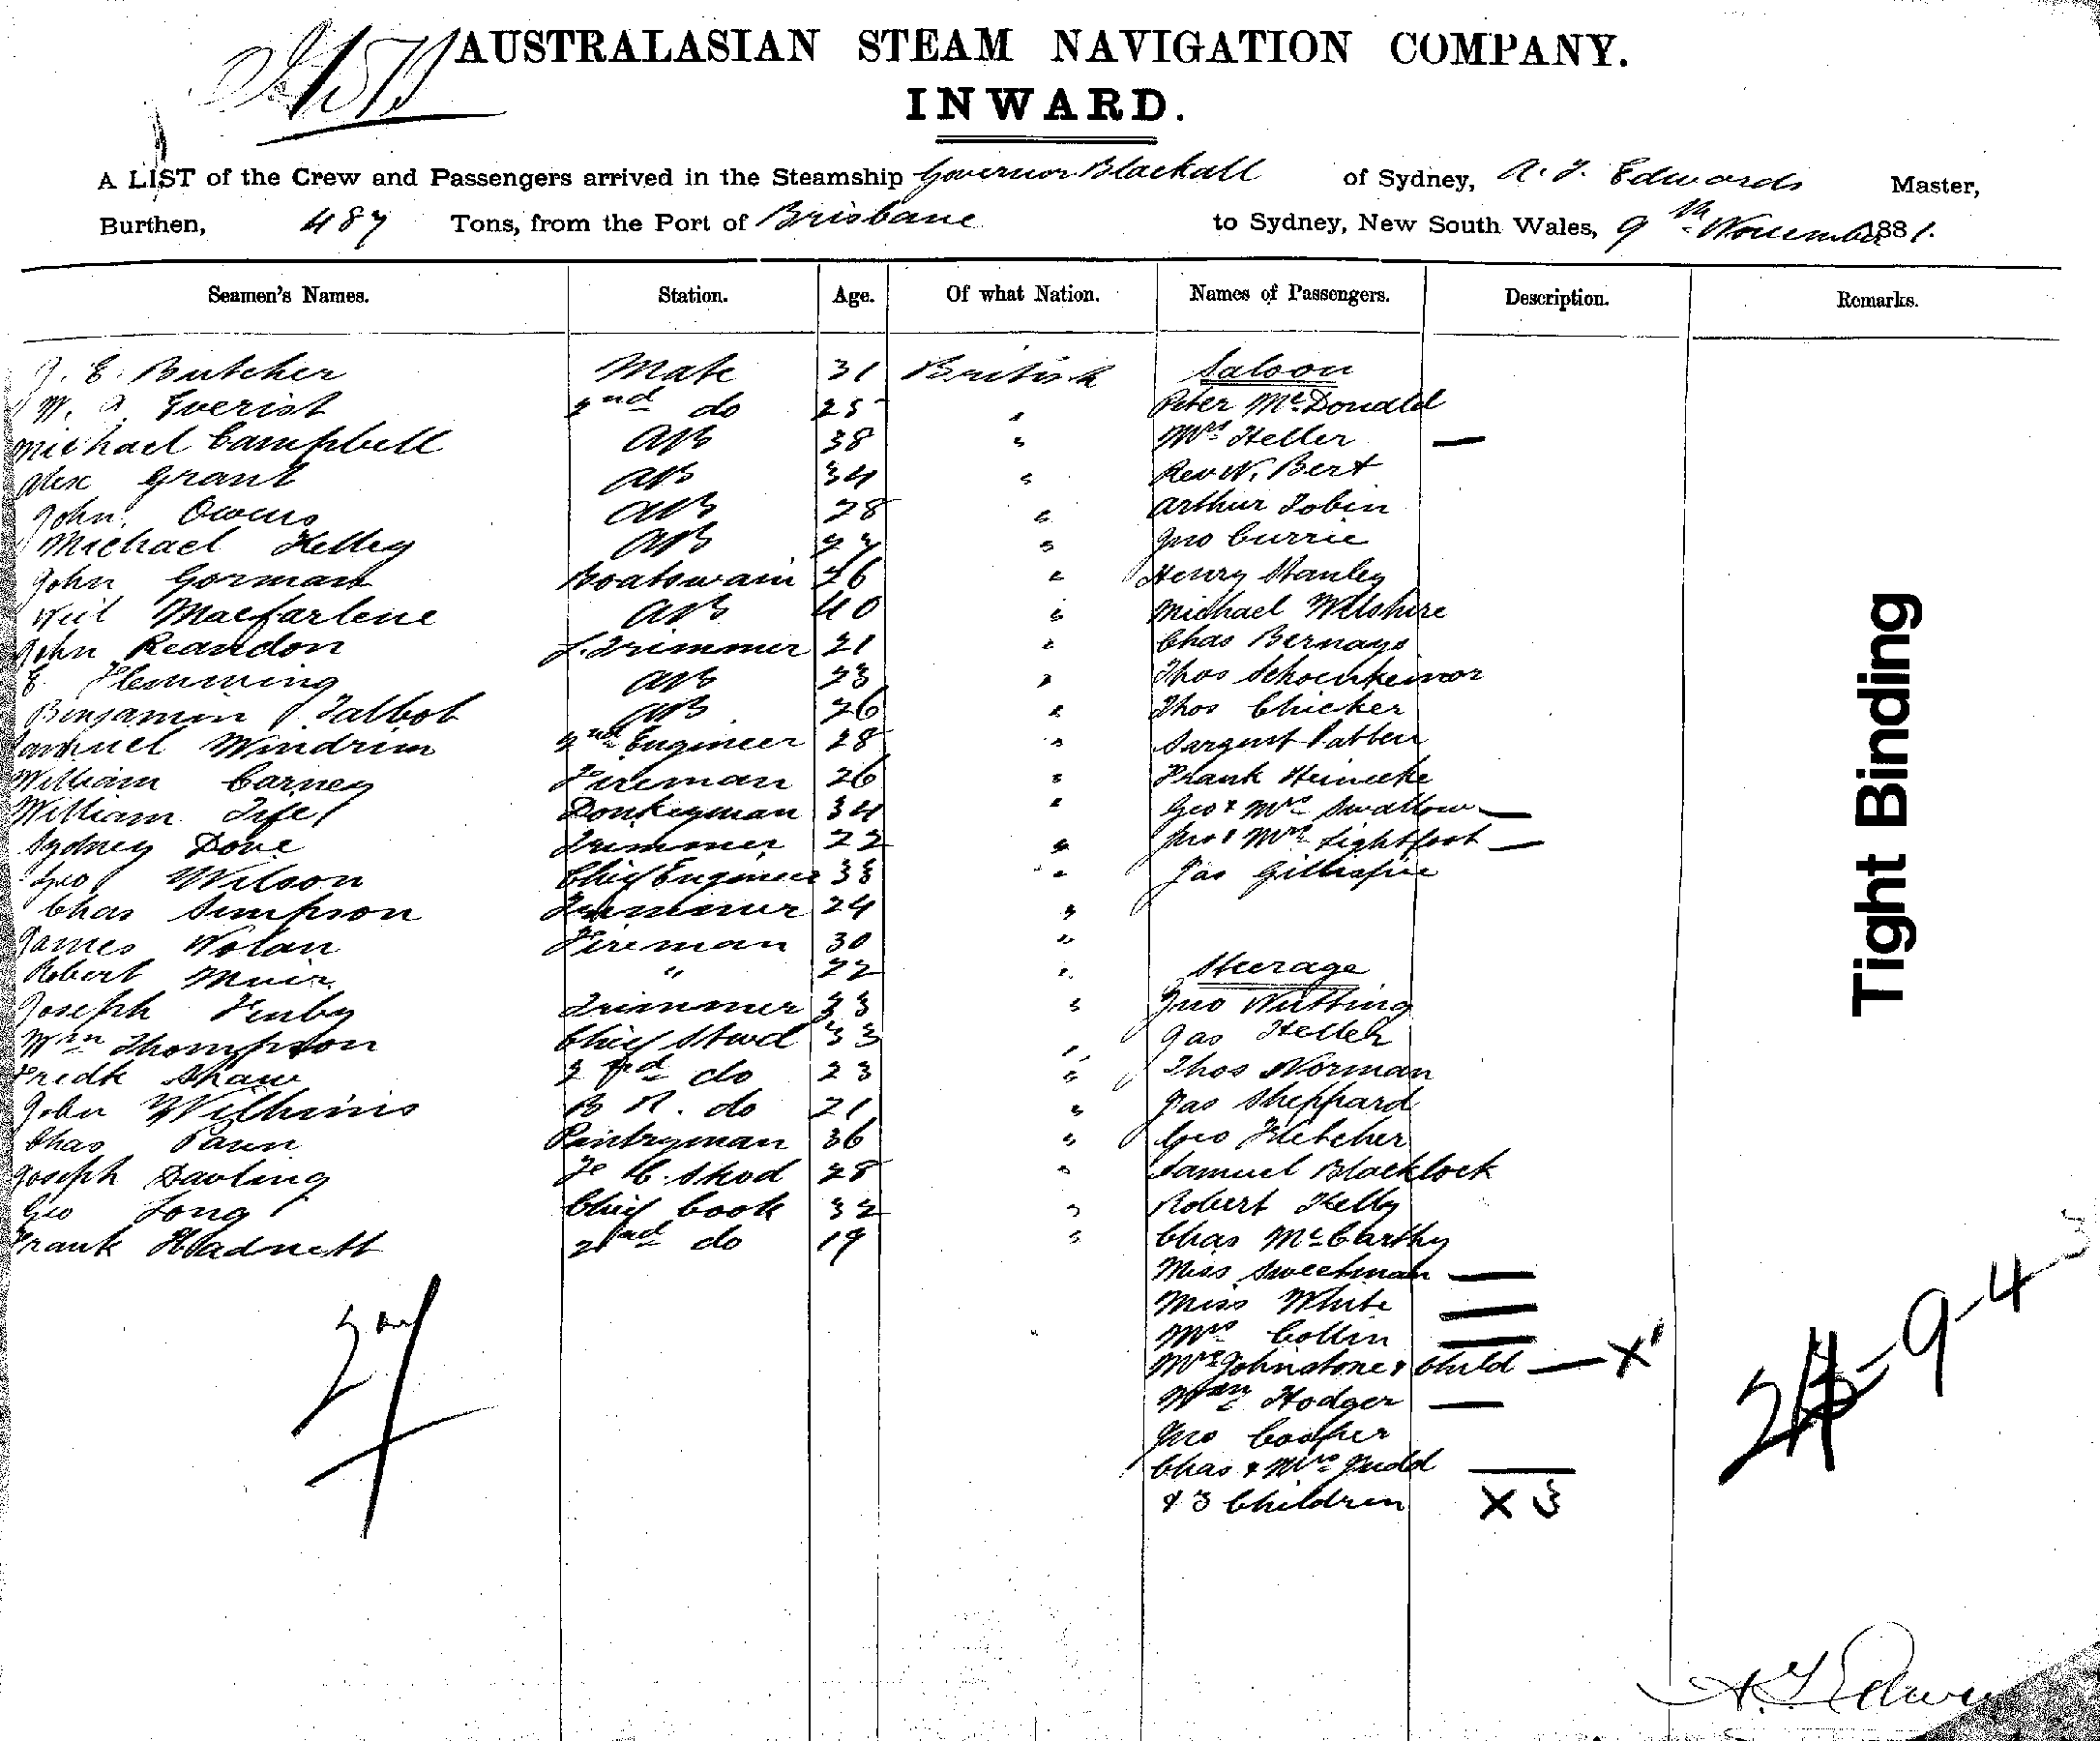 AUSTRALASIAN STEAM NAVIGATION COMPANY.
INWARD.
A LIST of the Crew and Passengers arrived in the Steamship Governor Blackall of Sydney, A. J. Edwards Master,
Burthen, 487 Tons, from the Port of Brisbane to Sydney, New South Wales, 9th November 1881.
Seamen's Names. Station. Age. Of what Nation. Names of Passengers. Description. Remarks.
J. E. Butcher Mate 31 British Saloon
W. A. Everist 2nd do 25 " Peter McDonald
Michael Campbell AB 38 " Mrs Heller
Alex Grant AB 34 " Rev W. Bert
John Owens AB 28 " Arthur Tobin
Michael Kelley AB 27 " Jno Currie
John Gorman Boatswain 26 " Henry Stanley
Neil Macfarlene AB 40 " Michael Wilshire
John Reandon F. Trimmer 21 " Chas Bernays
E Flemming AB 23 " Thos
Benjamin Talbot AB 26 " Thos Chicker
Samuel Windrim 2nd Engineer 28 "
William Carney Fireman 26 " Frank Heinecke
William Fife Donkeyman 34 " Geo & Mrs Swallow
Sydney Dove Trimmer 22 " Jno & Mrs Lightfoot
Geo Wilson Chief Engineer 38 " Jas Gillispie
Chas Simpson Trimmer 24 "
James Nolan Fireman 30 "
Robert Muir " 22 " Steerage
Joseph Fenby Trimmer 23 " Jno Nutting
Wm Thompson Chief Stwd 33 " Jas Kelleh
Fredk Shaw 2nd do 23 " Thos Norman
John Wilkins B R. do 21 " Jas Sheppard
Chas Pawn Pantryman 36 " Geo Fletcher
Joseph Dowling F C. Stwd 28 " Samuel Blacklock
Geo Long Chief Cook 32 " Robert Kelly
Frank Hadnett 2nd do 19 " Chas McCarthy
Miss Sweetman
Miss White
Mrs Collin
Mrs Johnstone & Child X 1
Wm Hodger
Jno Cooper
Chas & Mrs Judd
& 3 Children X 3
27
9-4-3
Tight Binding
A J Edwards